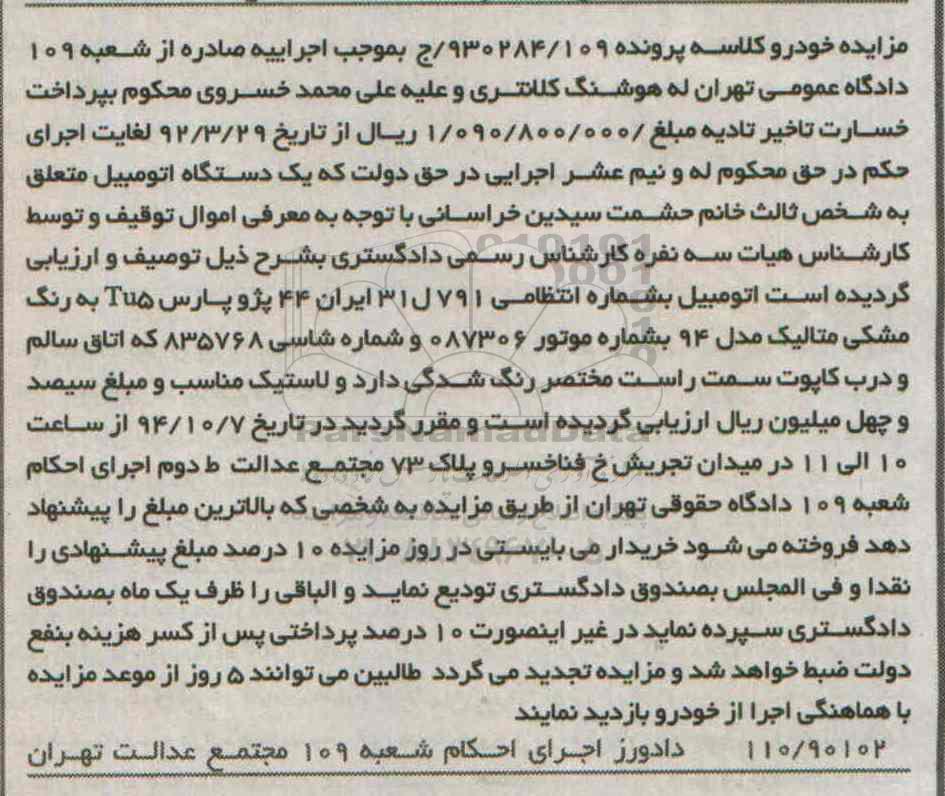 مزایده خودرو کلاسه پرونده ۹۳۰۲۸۴/۱۰۹/ج بموجب اجراییه صادره از شعبه ۱۰۹
دادگاه عمومی تهران له هوشنگ کلانتری و علیه علی محمد خسروی محکوم بپرداخت
خسارت تاخیر تادیه مبلغ ۱/۰۹۰/۸۰۰/۰۰۰/ ریال از تاریخ ۹۲/۳/۲۹ لغایت اجرای
حکم در حق محکوم له و نیم عشر اجرایی در حق دولت که یک دستگاه اتومبیل متعلق
به شخص ثالث خانم حشمت سیدین خراسانی با توجه به معرفی اموال توقیف و توسط
کارشناس هیات سه نفره کارشناس رسمی دادگستری بشرح ذیل توصیف و ارزیابی
گردیده است اتومبیل بشماره انتظامی ۷۹۱ ل۳۱ ایران ۴۴ پژو پارس Tu۵ به رنگ
مشکی متالیک مدل ۹۴ بشماره موتور ۰۸۷۳۰۶ و شماره شاسی ۸۳۵۷۶۸ که اتاق سالم
و درب کاپوت سمت راست مختصر رنگ شدگی دارد و لاستیک مناسب و مبلغ سیصد
و چهل میلیون ریال ارزیابی گردیده است و مقرر گردید در تاریخ ۹۴/۱۰/۷ از ساعت
۱۰ الی ۱۱ در میدان تجریش خ فناخسرو پلاک ۷۳ مجتمع عدالت ط دوم اجرای احکام
شعبه ۱۰۹ دادگاه حقوقی تهران از طریق مزایده به شخصی که بالاترین مبلغ را پیشنهاد
دهد فروخته می شود خریدار می بایستی در روز مزایده ۱۰ درصد مبلغ پیشنهادی را
نقدا و فی المجلس بصندوق دادگستری تودیع نماید و الباقی را ظرف یک ماه بصندوق
دادگستری سپرده نماید در غیر اینصورت ۱۰ درصد پرداختی پس از کسر هزینه بنفع
دولت ضبط خواهد شد و مزایده تجدید می گردد طالبین می توانند ۵ روز از موعد مزایده
با هماهنگی اجرا از خودرو بازدید نمایند
۱۱۰/۹۰۱۰۲ دادورز اجرای احکام شعبه ۱۰۹ مجتمع عدالت تهران
ParsNamadData